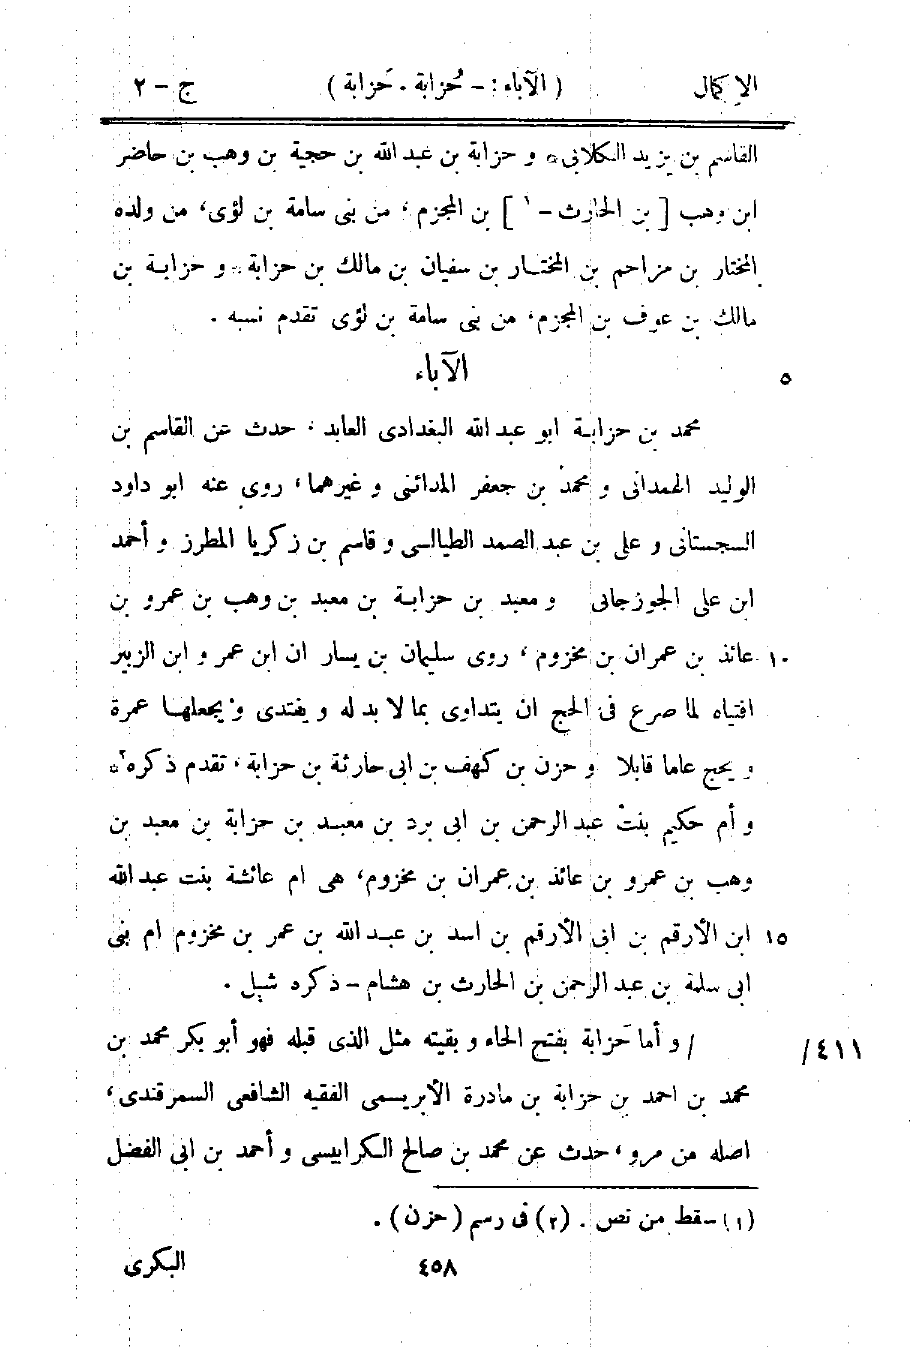 الإكمال ( الآباء : - حُزابة . حَزابة ) ج - ٢
القاسم بن يزيد الكلابى ۞ و حزابة بن عبد الله بن حجية بن وهب بن حاضر
ابن وهب [ بن الحارث - ١ ] بن المجزم ، من بنى سامة بن لؤى، من ولده
المختار بن مزاحم بن المختار بن سفيان بن مالك بن حزابة ۞ و حزابة بن
مالك بن عوف بن المجزم، من بنى سامة بن لؤى تقدم نسبه .
٥ الآباء
محمد بن حزابة ابو عبد الله البغدادى العابد ، حدث عن القاسم بن
الوليد الهمدانى و محمد بن جعفر المدائنى و غيرهما، روى عنه ابو داود
السجستانى و على بن عبد الصمد الطيالسى و قاسم بن زكريا المطرز و أحمد
ابن على الجوزجانى و معبد بن حزابة بن معبد بن وهب بن عمرو بن
١٠ عائذ بن عمران بن مخزوم ، روى سليمان بن يسار ان ابن عمر و ابن الزبير
افتياه لما صرع فى الحج ان يتداوى بما لا بد له و يفتدى و يجعلها عمرة
و يحج عاما قابلا و حزن بن كهف بن ابى حارثة بن حزابة ، تقدم ذكره ٢ ۞
و أم حكيم بنت عبد الرحمن بن ابى برد بن معبد بن حزابة بن معبد بن
وهب بن عمرو بن عائذ بن عمران بن مخزوم، هى ام عائشة بنت عبد الله
١٥ ابن الأرقم بن ابى الأرقم بن اسد بن عبد الله بن عمر بن مخزوم ام بنى
ابى سلمة بن عبد الرحمن بن الحارث بن هشام - ذكره شبل .
٤١١/ / و أما حَزابة بفتح الحاء و بقيته مثل الذى قبله فهو أبو بكر محمد بن
محمد بن احمد بن حزابة بن مادرة الأبريسمى الفقيه الشافعى السمرقندى ،
اصله من مرو ، حدث عن محمد بن صالح الكرابيسى و أحمد بن ابى الفضل
(١) سقط من نص . (٢) فى رسم (حزن) .
٤٥٨ البكرى